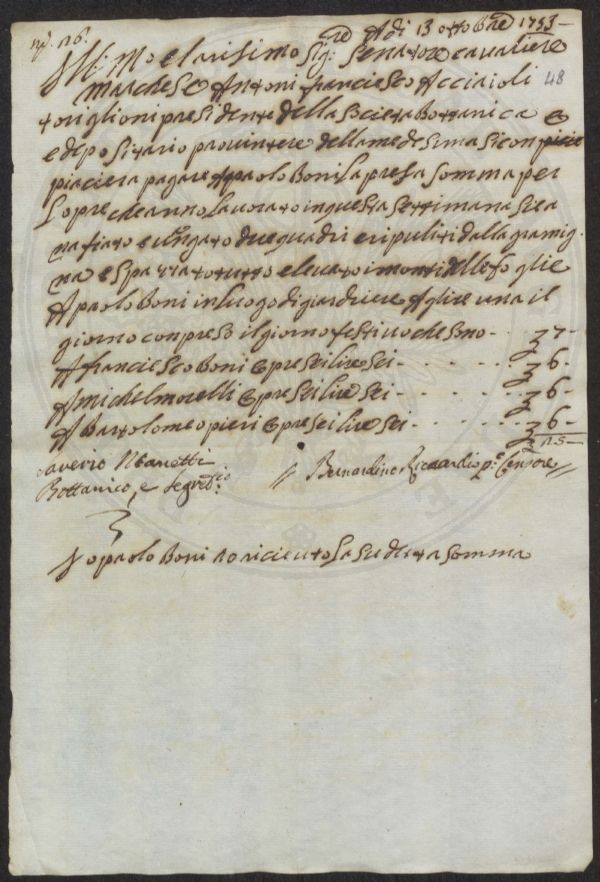 Adi 13 ottobre 1753
Ill: Mo e larisimo Sig:re Senatore cavaliere
Marchese Antoni franciesco Acciaioli 48
toriglioni presidente della Societa Bottanica e
e depositario provintere della medesima si conpiacie
piaciera pagare A paolo Boni la presa somma per
lopre che anno lavorato in questa settimana sie a
nafiato e ungato due quadri e ripuliti dalla gramig
na e spazzato tutto e levato i monti delle foglie
A paolo Boni in luogo di giardiniere A lire una il
giorno conpreso il giorno festivo che sono - - 7 -
A franciesco Boni opre sei lire sei - - - - - 6 -
A michel morelli opre sei lire sei - - - - - 6 -
A Bartolomeo pieri opre sei lire sei - - - - 6 -
25 -
Saverio Manetti
Bottanico, e Segret.rio
Bernardino Riccardi p.o Censore
Io paolo Boni o riceuto la sudetta somma